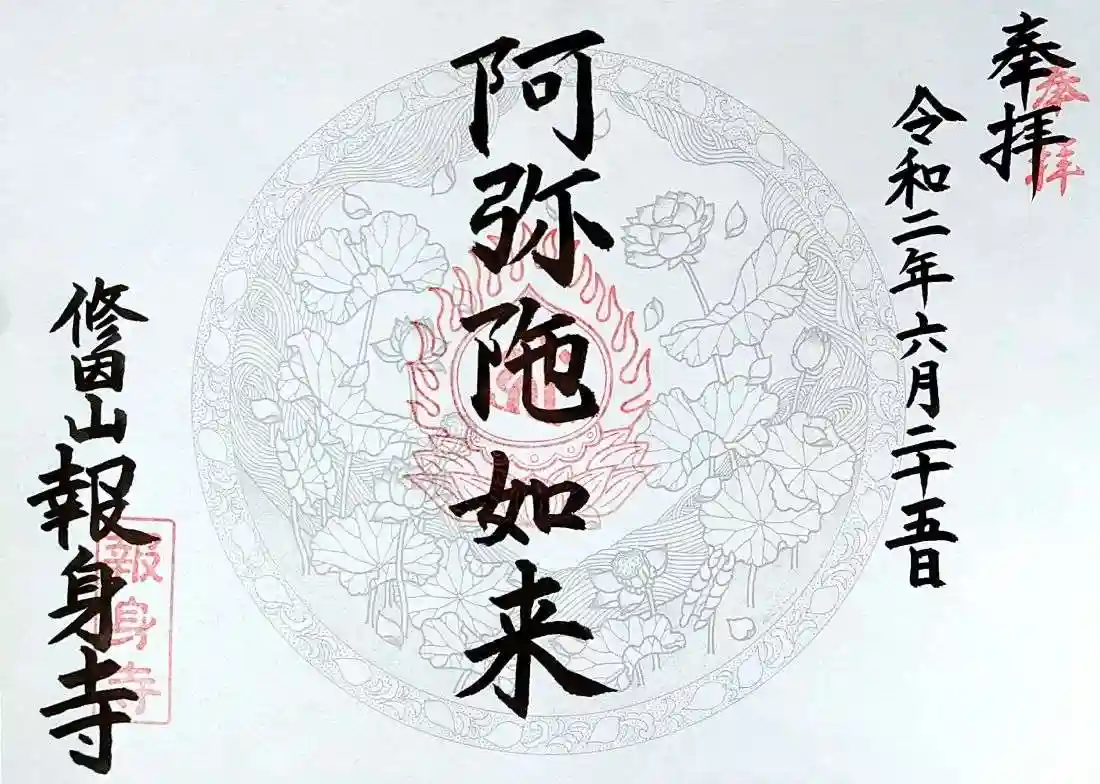 奉拝
奉拝
令和二年六月二十五日
阿弥陁如来
修因山報身寺
報身寺